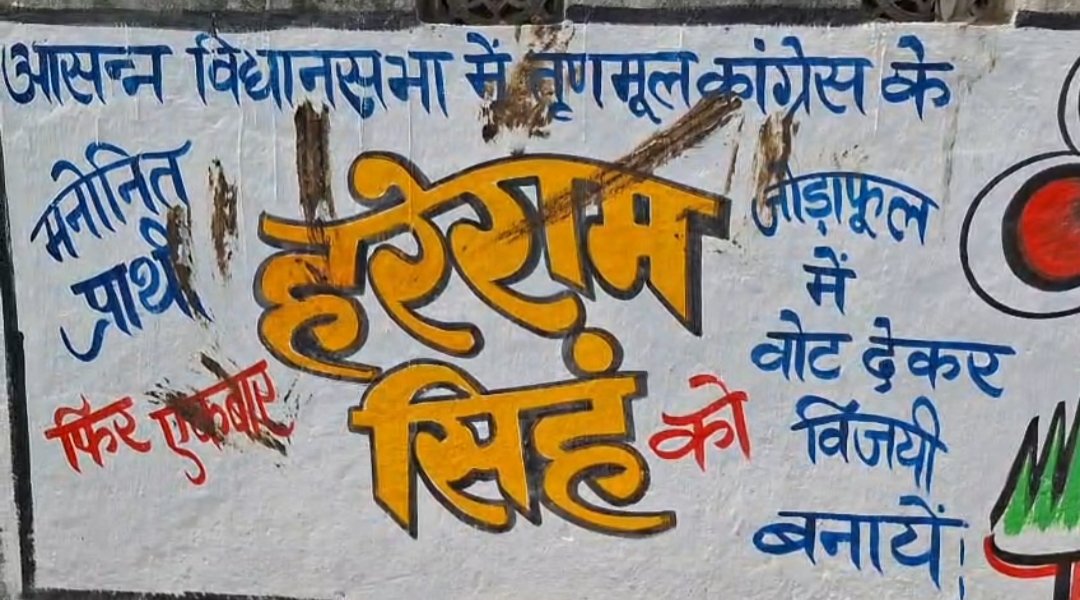 आसन्न विधानसभा में तृणमूल कांग्रेस के
मनोनित
प्रार्थी
हरेराम
सिहं
फिर एकबार
को
जोड़ाफूल
में
वोट देकर
विजयी
बनायें।